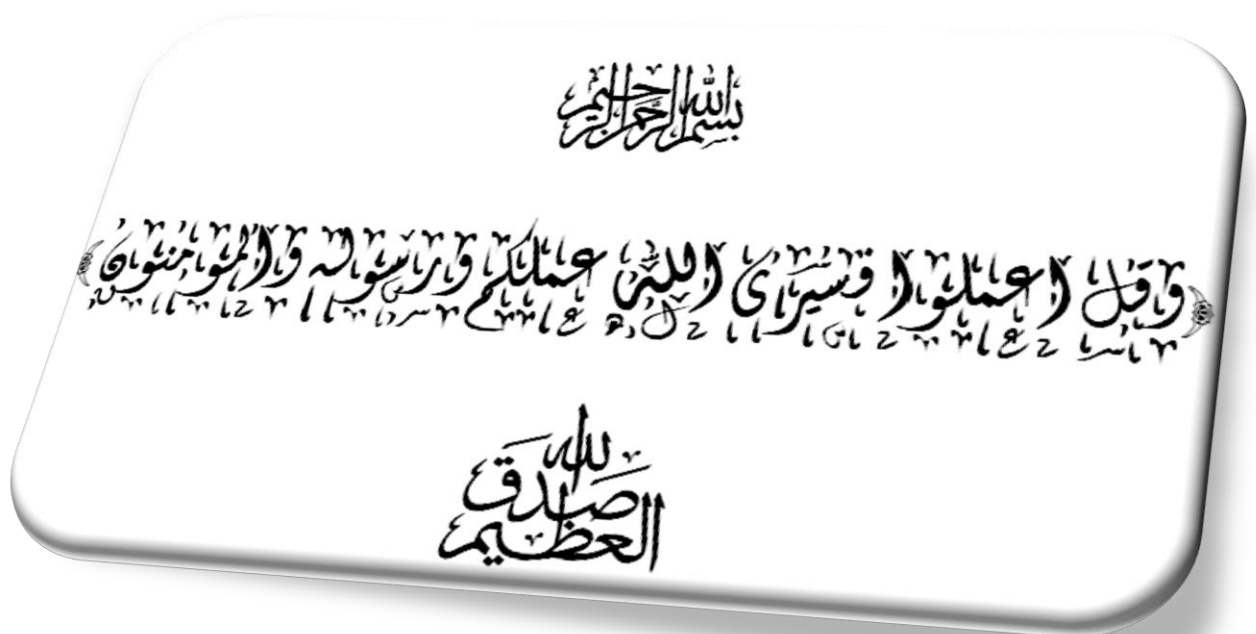 بسم الله الرحمن الرحيم
﴿وقل اعملوا فسيرى الله عملكم ورسوله والمؤمنون﴾
صدق الله العظيم